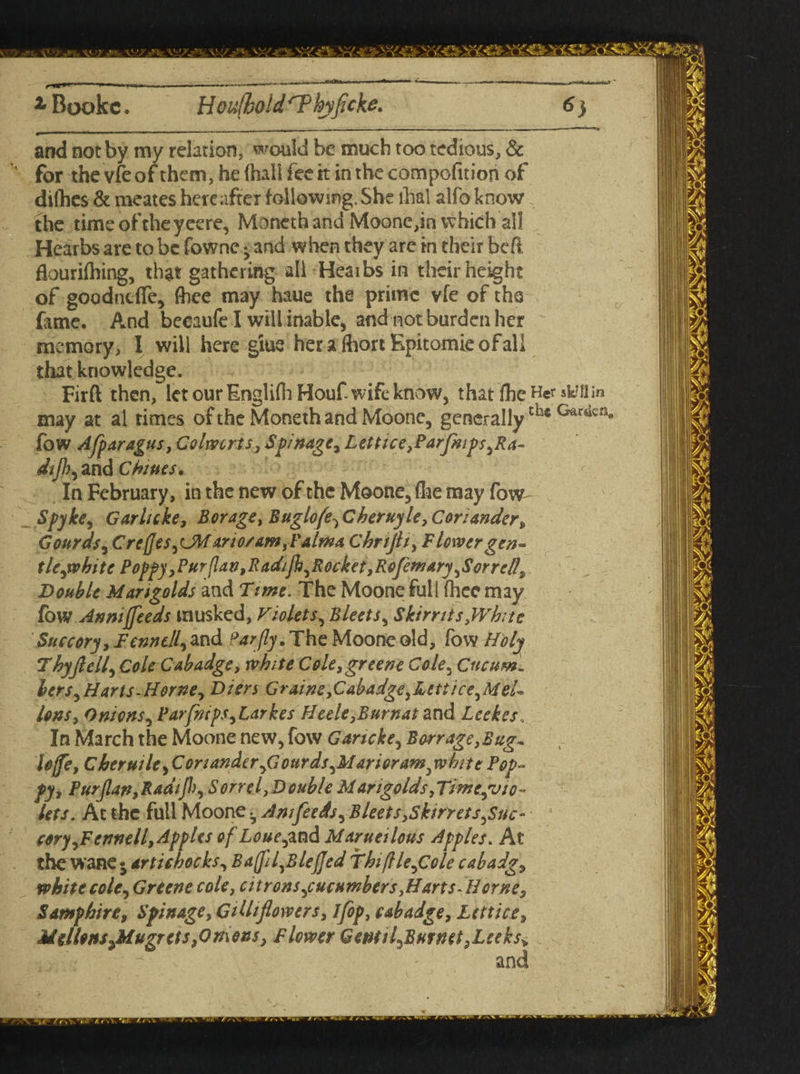 2 Booke. Houſhold Phyſicke. 63
and not by my relation, would be much too tedious, &
for the vſe of them, he ſhall ſee it in the compoſition of
diſhes & meates hereafter following. She ſhal alſo know
the time of the yeere, Moneth and Moone, in which all
Hearbs are to be ſowne; and when they are in their beſt
flouriſhing, that gathering all Hearbs in their height
of goodneſſe, ſhee may haue the prime vſe of the
ſame. And becauſe I will inable, and not burden her
memory, I will here giue her a ſhort Epitomie of all
that knowledge.
Firſt then, let our Engliſh Houſ-wife know, that ſhe
may at al times of the Moneth and Moone, generally
ſow Aſparagus, Colworts, Spinage, Lettice, Parſnips, Ra-
diſh, and Chiues.
Her skill in
the Garden.
In February, in the new of the Moone, ſhe may ſow
Spyke, Garlicke, Borage, Bugloſe, Cheruyle, Coriander,
Gourds, Creſſes, Marioram, Palma Chriſti, Flower gen-
tle, white Poppy, Purſlan, Radiſh, Rocket, Roſemary, Sorrell,
Double Marigolds and Time. The Moone full ſhee may
ſow Anniſſeeds musked, Violets, Bleets, Skirrits, White
Succory, Fennell, and Parſly. The Moone old, ſow Holy
Thyſtell, Cole Cabadge, white Cole, greene Cole, Cucum-
bers, Harts-Horne, Diers Graine, Cabadge, Lettice, Mel-
lons, Onions, Parſnips, Larkes Heele, Burnat and Leekes.
In March the Moone new, ſow Garlicke, Borrage, Bug-
loſſe, Cheruile, Coriander, Gourds, Marioram, white Pop-
py, Purſlan, Radiſh, Sorrel, Double Marigolds, Time, vio-
lets. At the full Moone; Aniſeeds, Bleets, Skirrets, Suc-
cory, Fennell, Apples of Loue, and Marueilous Apples. At
the wane; artichocks, Baſſil, Bleſſed Thiſtle, Cole cabadg,
white cole, Greene cole, citrons, cucumbers, Harts-Horne,
Samphire, Spinage, Gilliflowers, Iſop, cabadge, Lettice,
Mellons, Mugrets, Onions, Flower Gentil, Burnet, Leeks,
and